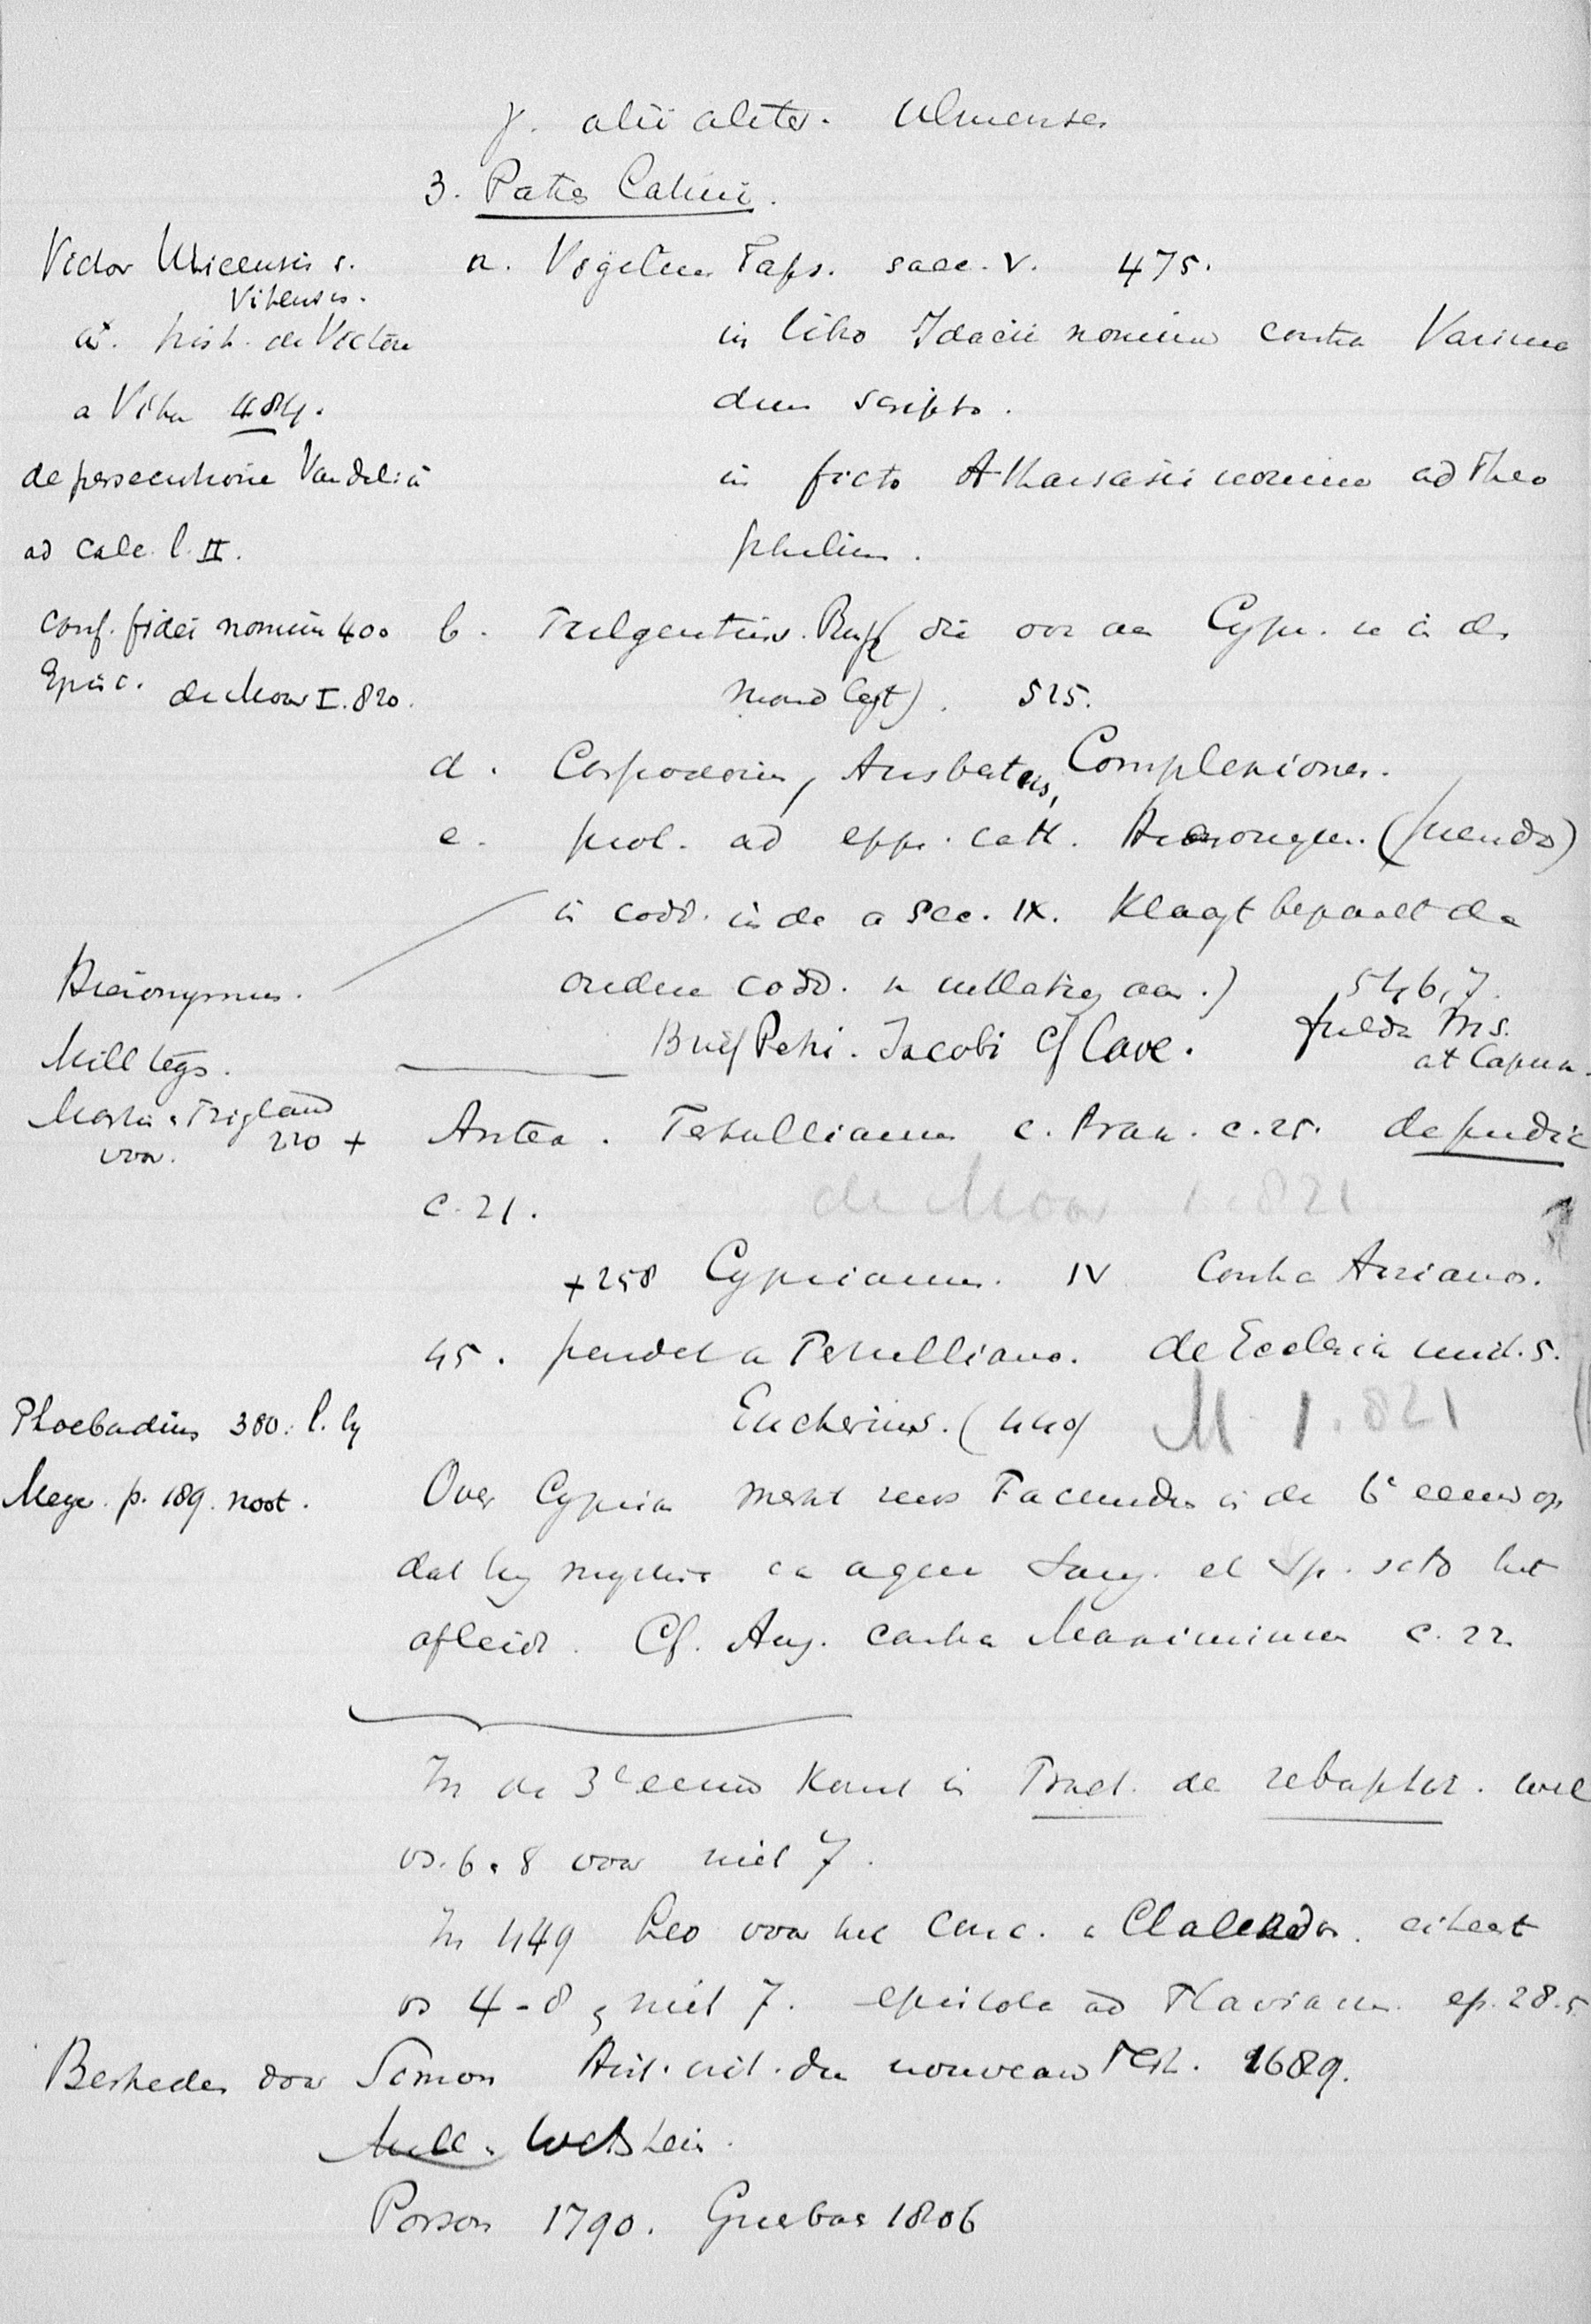 γ. alii aliter. Ulmenses
3. Patres Latini.
Victor Uticensis s.
Vitensis.
hist. de Victore
a Vita 484.
de persecutione Vandelica
ad calc. l. II.
conf. fidei nomin 400
Episc. de Moor I. 820.
a. Vigilius Taps. saec. V. 475.
in libro Idacii nomine contra Varima
dum scripto.
in ficto Athanasii nomine ad Theo
philum.
b. Fulgentius. Rusp (die ook aan Cypr. in de
mond legt). 525.
d. Cassiodorius, Complexiones.
e. prol. ad epp. cath. Hieronym. (pseudo)
in codd. inde a sec. IX. Klaagt bepaalde
oudere codd. aan.) 546,7.
Hieronymus.
Brief Petri. Jacobi cf Cave. fulda Ms.
at Capua.
Mill tegs.
Martin. Trigland
voor.
220 + Antea. Tertullianus c. Prax. c. 25. de pudic
c. 21. de Moor 1. 821
+258 Cyprianus. IV Contra Arianos.
45. pendet a Tertulliano. de Ecclesia unit. 5.
Eucherius. (440) M 1. 821
Phoebadius 380. l. by
Meyer p. 189. noot.
Over Cyprian merkt reeds Facundus in de 6e eeuw op
dat hij mystice en aqua sang. et sp. scto het
afleidt. Cf. Aug. contra Maximinum c. 22
In de 3e eeuw komt in Tract. de rebaptiz. wel
vs. 6. 8 voor niet 7.
In 449 Leo voor het Conc. v Chalcedon. citeert
vs 4-8, niet 7. epistola ad Flavianum. ep. 28.5
Bestreden door Simon Hist. crit. du nouveau Test. 1689.
Mill. Wetstein.
Porson 1790. Griesbac 1806